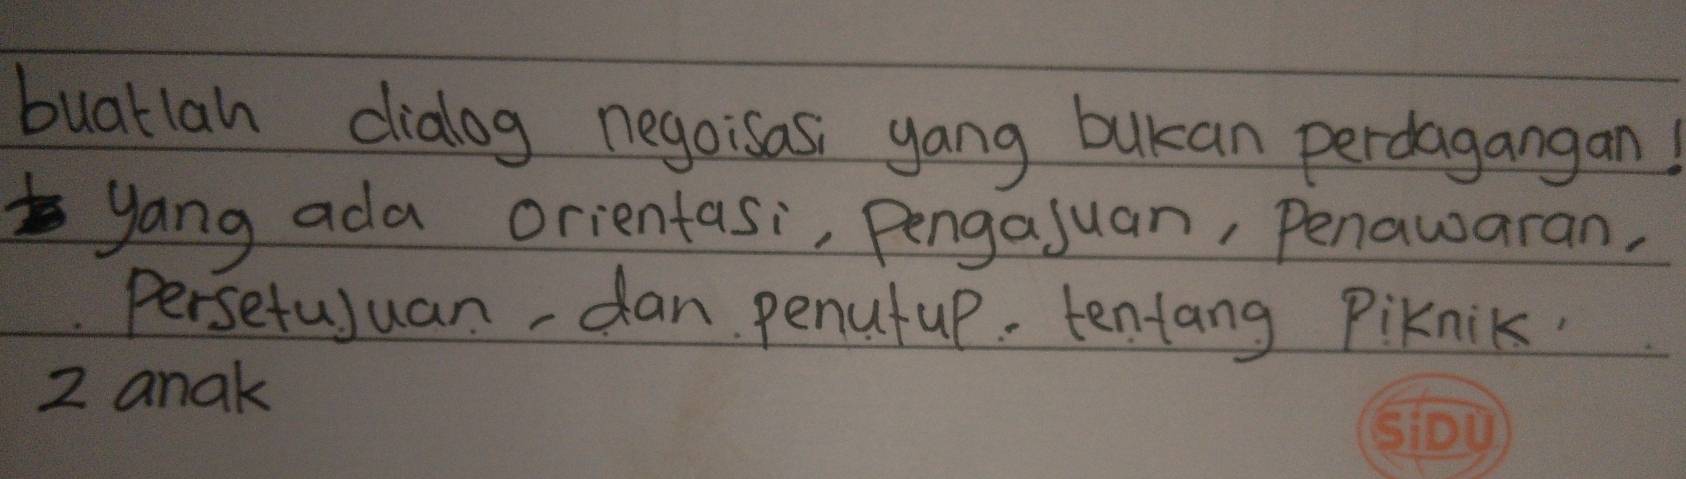 buatlah dialog negoisasi yang bukan perdagangan!
yang ada orientasi, Pengajuan, Penawaran,
Persetujuan, dan penutup. tentang Piknik.
2 anak
SiDU